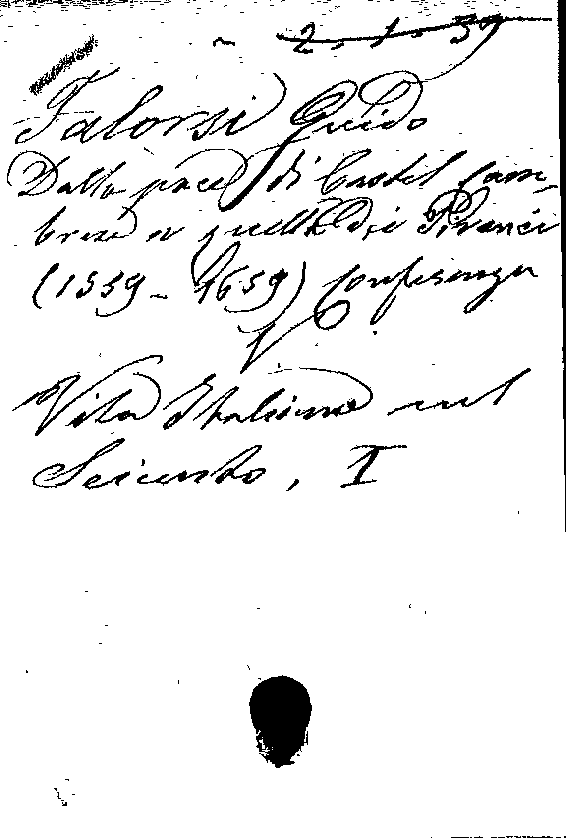 2. 1. 39
Falorsi Guido
Dalla pace di Castel Cam-
bresis a quella dei Pirenei
(1559 - 1659) Conferenza
V
Vita Italiana nel
Seicento, I